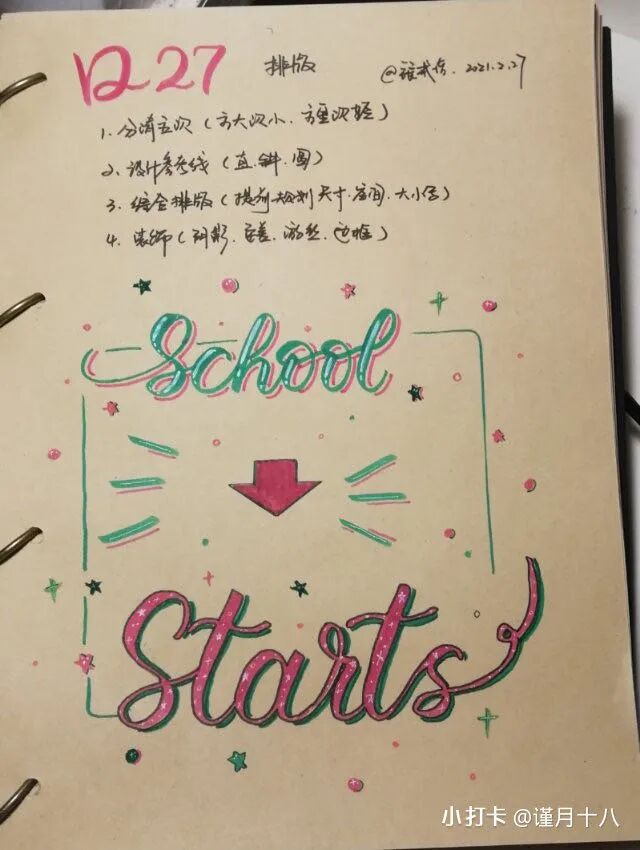 D27 排版 @ 2021.2.27
1. 分清主次（主大次小、主重次轻）
2. 设计参考线（直、斜、圆）
3. 综合排版（提前规划尺寸、空间、大小等）
4. 装饰（阴影、 边框）
School
Starts
小打卡 @谨月十八